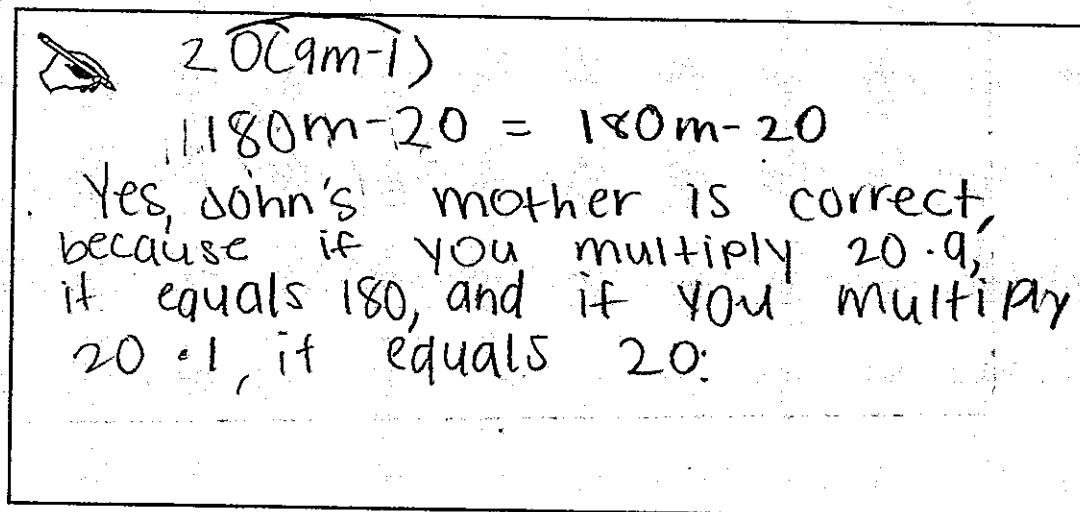 20(9m-1)
180m-20 = 180m-20
Yes, John's mother is correct,
because if you multiply 20·9,
it equals 180, and if you multiply
20·1, it equals 20.